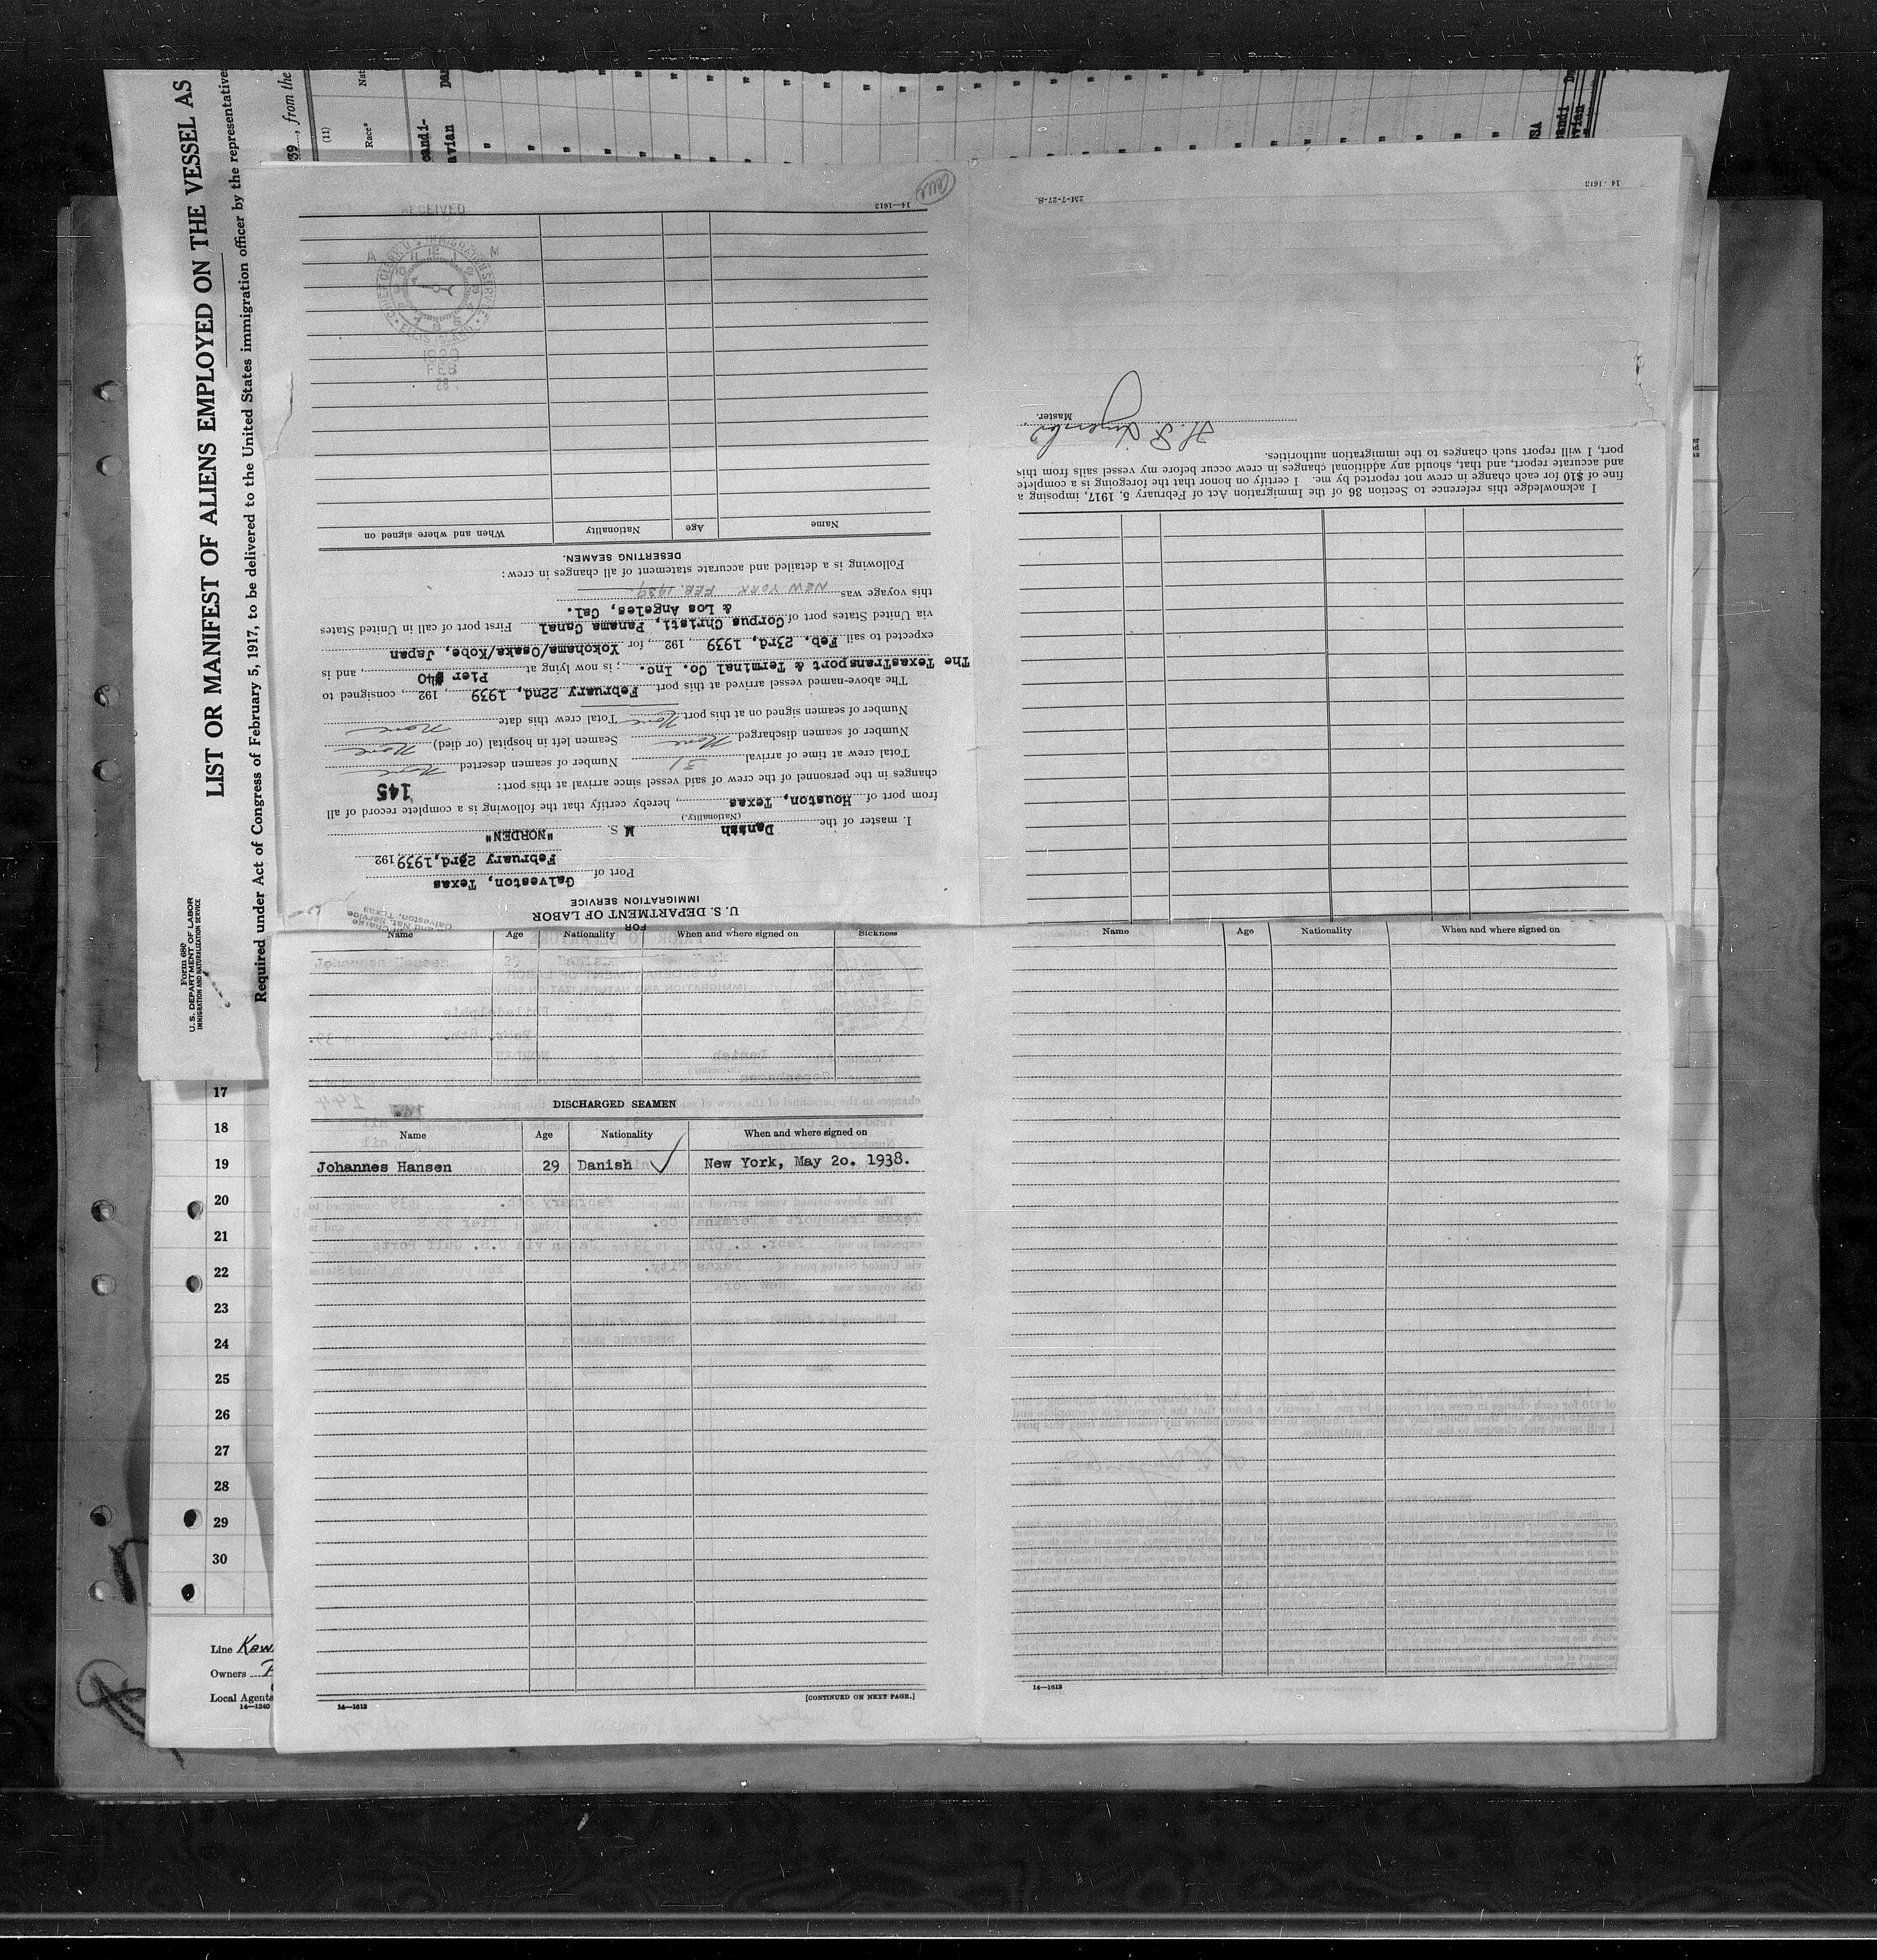 LIST OR MANIFEST OF ALIENS EMPLOYED ON THE VESSEL AS
Required under Act of Congress of February 5, 1917, to be delivered to the United States immigration officer by the representative
Form 680
U. S. DEPARTMENT OF LABOR
IMMIGRATION AND NATURALIZATION SERVICE
39, from the
(11)
Race*
Nat
candi-
avian
Dan
U. S. DEPARTMENT OF LABOR
IMMIGRATION SERVICE
Port of Galveston, Texas
February 23rd, 1939 192
I, master of the Danish M S. "NORDEN"
(Nationality.)
from port of Houston, Texas, hereby certify that the following is a complete record of all
changes in the personnel of the crew of said vessel since arrival at this port: 145
Total crew at time of arrival 31 Number of seamen deserted None
Number of seamen discharged None Seamen left in hospital (or died) None
Number of seamen signed on at this port None Total crew this date None
The above-named vessel arrived at this port February 22nd, 1939, 192, consigned to
The TexasTransport & Terminal Co. Inc. ; is now lying at Pier #40, and is
expected to sail Feb. 23rd, 1939, 192, for Yokohama/Osaka/Kobe, Japan
via United States port of Corpus Christi, Panama Canal First port of call in United States
& Los Angeles, Cal.
this voyage was NEW YORK FEB. 1939.
Following is a detailed and accurate statement of all changes in crew:
DESERTING SEAMEN.
Name Age Nationality When and where signed on
RECEIVED
A M
CHIEF CLERK, U. S. IMMIGRATION SERVICE
ELLIS ISLAND
FEB
28
14—1613
I acknowledge this reference to Section 36 of the Immigration Act of February 5, 1917, imposing a
fine of $10 for each change in crew not reported by me. I certify on honor that the foregoing is a complete
and accurate report, and that, should any additional changes in crew occur before my vessel sails from this
port, I will report such changes to the immigration authorities.
Master.
2M-7-27-S.
14-1613
FOR
Name Age Nationality When and where signed on Sickness
DISCHARGED SEAMEN
Name Age Nationality When and where signed on
Johannes Hansen 29 Danish New York, May 20. 1938.
14—1613
[CONTINUED ON NEXT PAGE.]
Name Age Nationality When and where signed on
14—1613
17
18
19
20
21
22
23
24
25
26
27
28
29
30
Line
Owners
Local Agents
14—1240